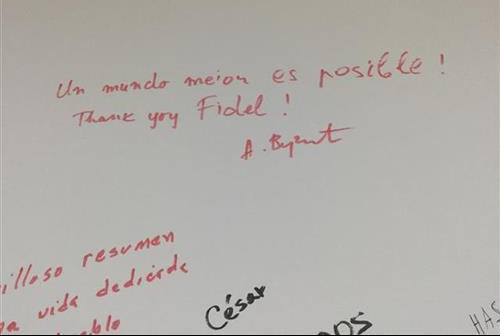 Un mundo mejor es posible!
Thank yoy Fidel!
A.
illoso resumen
a vida dedicada
César
HAS